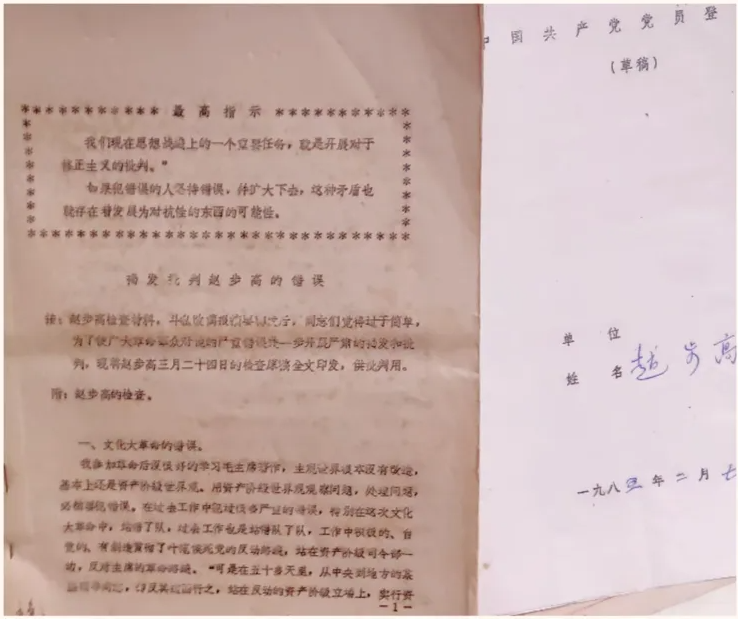 * * * * * * * * * * 最高指示 * * * * * * * * * *
我们现在思想战线上的一个重要任务，就是开展对于
修正主义的批判。"
如果犯错误的人坚持错误，并扩大下去，这种矛盾也
就存在着发展为对抗性的东西的可能性。
揭发批判赵步高的错误
注：赵步高检查材料，斗批改 后，同志们觉得过于简单，
为了使广大革命群众对他的严重错误进一步开展严肃的揭发和批
判，现将赵步高三月二十四日的检查原稿全文印发，供批判用。
附：赵步高的检查。
一、文化大革命的错误。
我参加革命后没很好的学习毛主席著作，主观世界根本没有改造，
基本上还是资产阶级世界观。用资产阶级世界观观察问题，处理问题，
必然要犯错误。在过去工作中犯过很多严重的错误，特别在这次文化
大革命中，站错了队，过去工作也是站错队了队，工作中积极的、自
觉的、有创造 了叶 死党的反动路线，站在资产阶级司令部一
边，反对主席的革命路线。"可是在五十多天里，从中央到地方的某
些领导同志，却反其道而行之，站在反动的资产阶级立场上，实行资
—1—
中国共产党党员登
（草稿）
单位
姓名 赵步高
一九八五年二月七